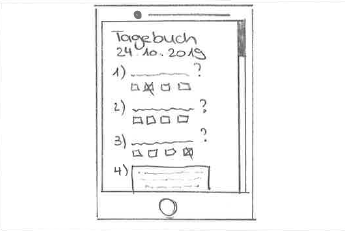 Tagebuch
24.10.2019
1) ?
2) ?
3) ?
4)